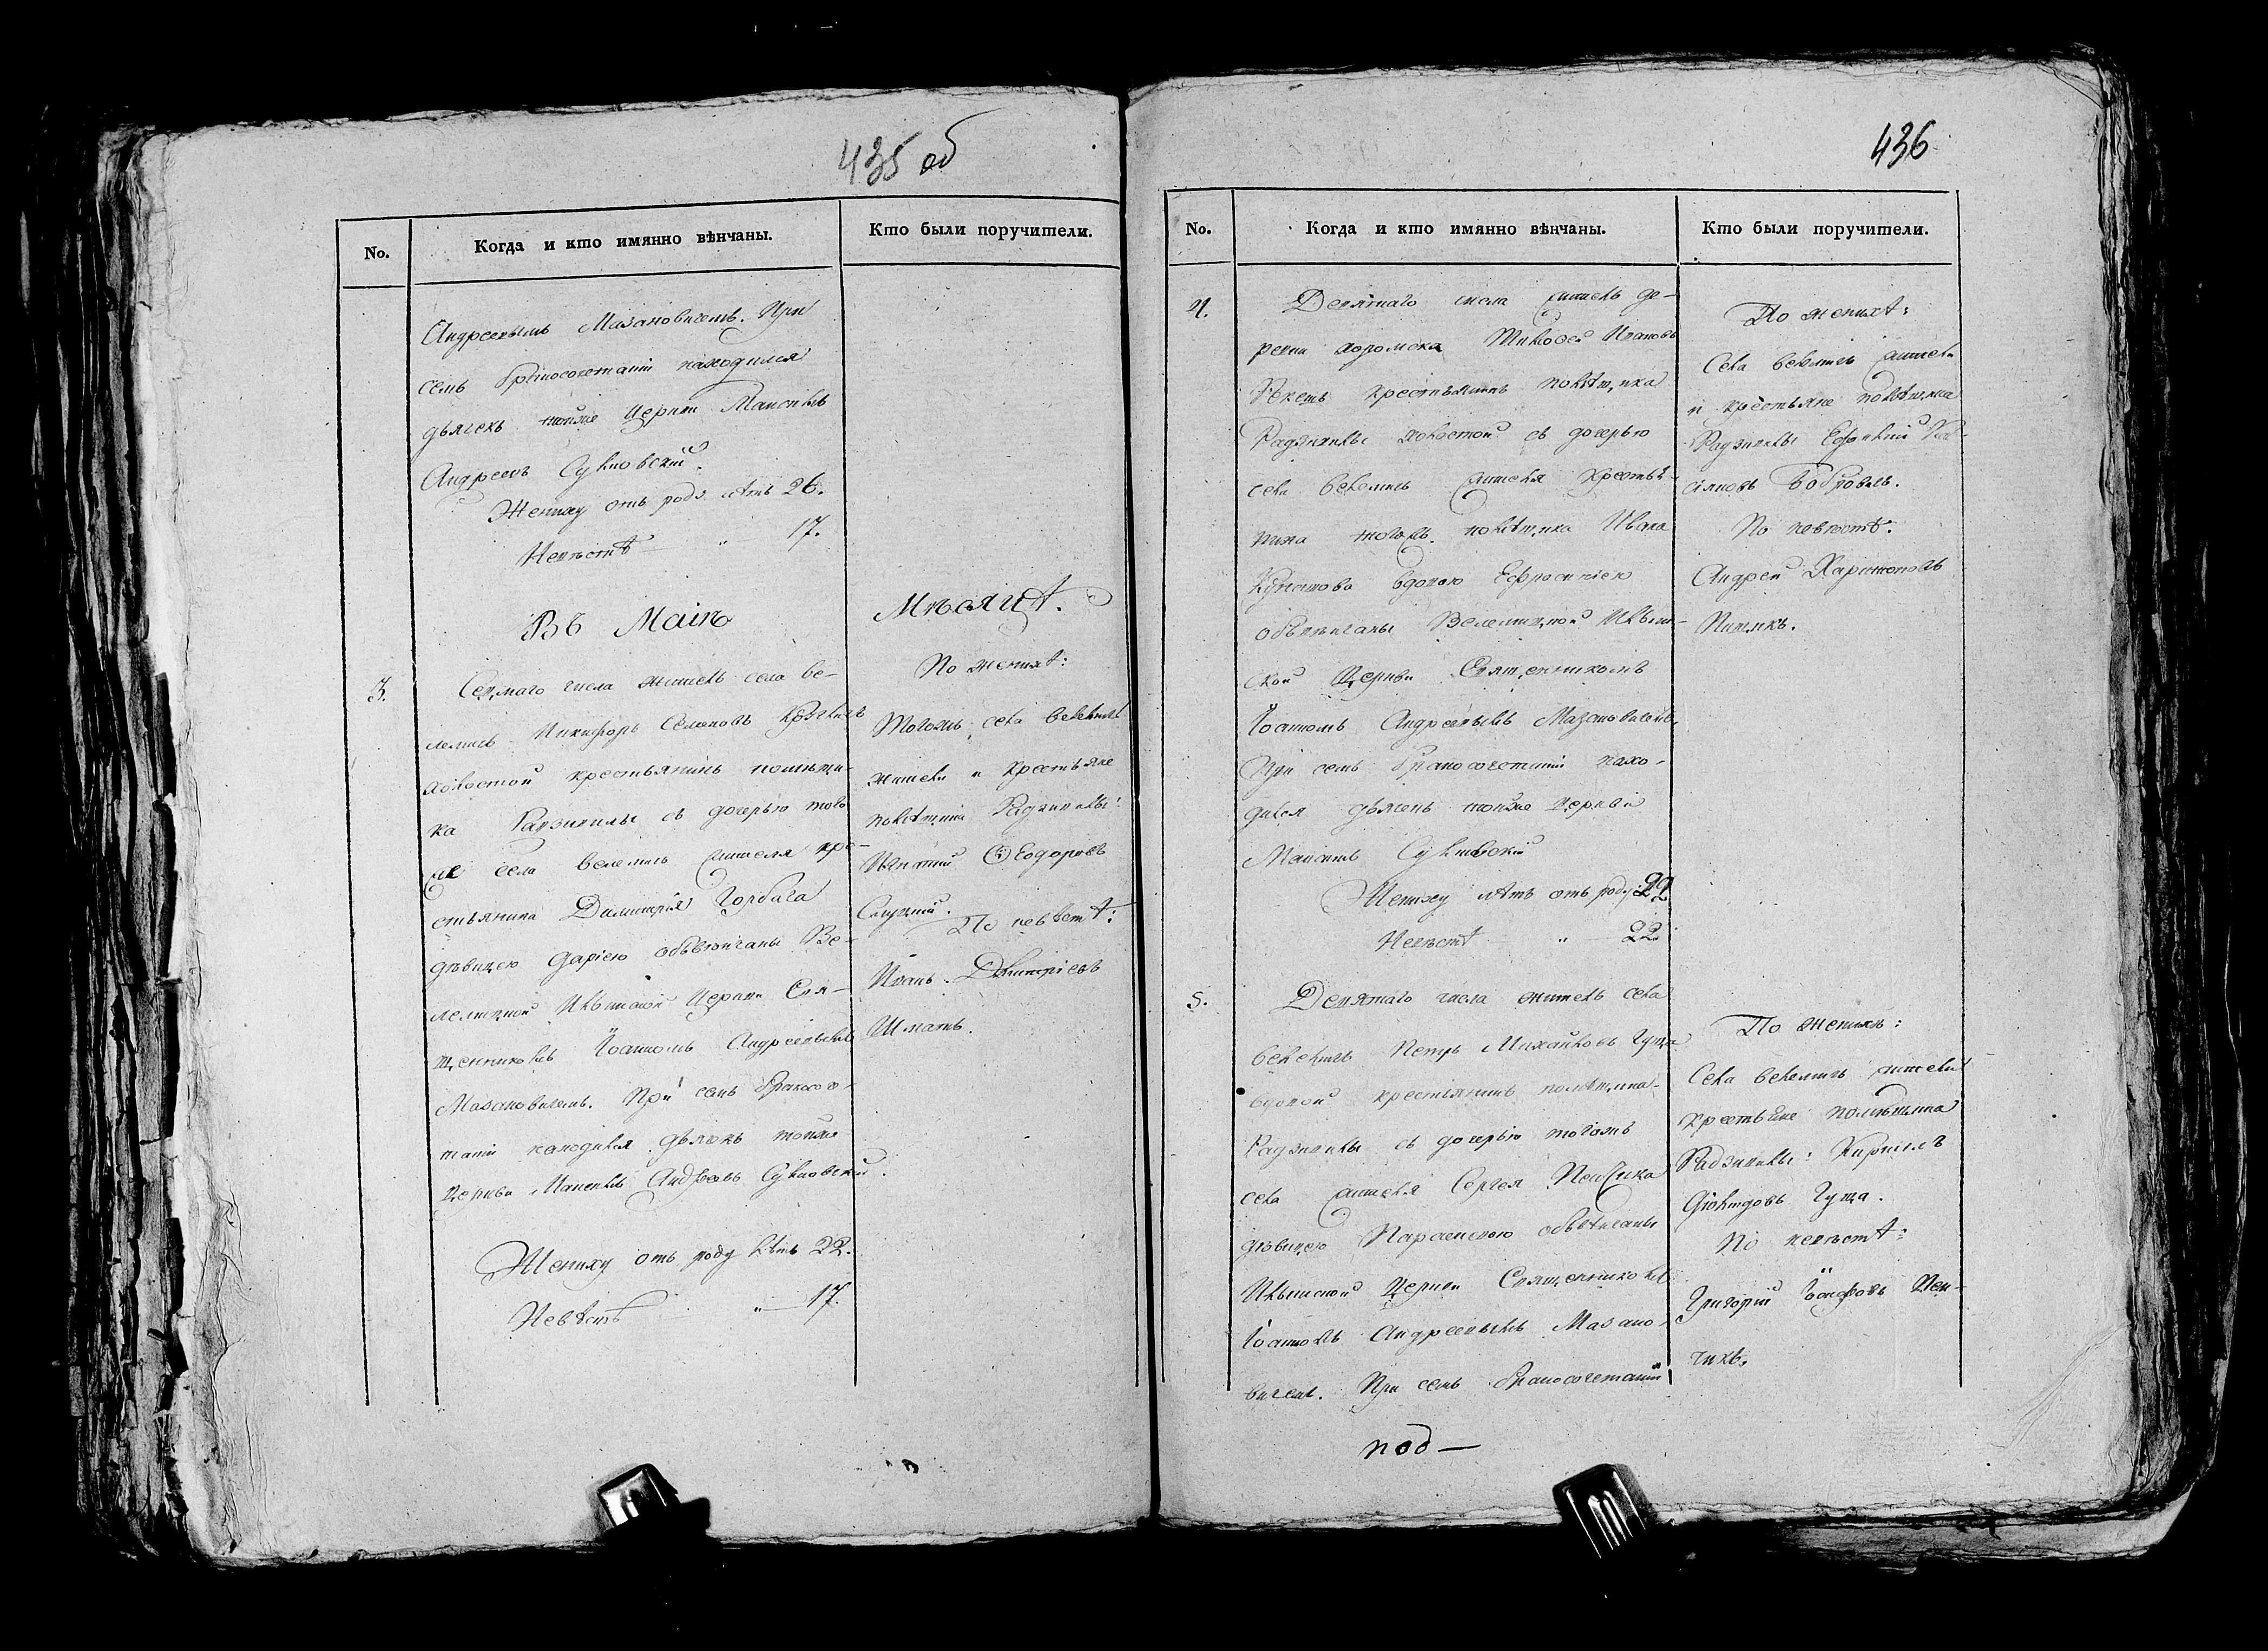 435 об
No.
Когда и кто имянно вѣнчаны.
Кто были поручители.
Андреевымъ Мазановичемъ. При
семъ бракосочетаніи находился
дьячекъ тойже Церкви Маиселъ
Андреевъ Сулковскій.
Жениху отъ роду лѣтъ 26.
Невѣстѣ „ 17.
Въ Маіѣ
Мѣсяцѣ.
3.
Седмаго числа житель села Ве-
лемичъ Никифоръ Семеновъ
холостой крестьянинъ помѣщи-
ка Радзивилы съ дочерью того
же села Велемичъ жителя кре-
стьянина Димитрія Горбача
дѣвицею Даріею обвѣнчаны Ве-
лемицкой Церкви Свя-
щенникомъ Іоанномъ Андреевымъ
Мазановичемъ. При семъ бракосоче-
таніи находился дьячекъ тойже
Церкви Андреевъ Сулковскій.
Жениху отъ роду лѣтъ 22.
Невѣстѣ „ 17.
По женихѣ:
Тогожъ села Велемичъ
жители и крестьяне
помѣщика Радзивилы:
Ѳеодоровъ
По невѣстѣ:
Иванъ Дмитріевъ
Шматъ.
436
No.
Когда и кто имянно вѣнчаны.
Кто были поручители.
4.
Девятаго числа житель де-
ревни Хоромска Тимофей Ивановъ
крестьянинъ помѣщика
Радзивилы холостой съ дочерью
села Велемичъ жителя крестья-
нина тогожъ помѣщика Ивана
вдовою Ефросиніею
обвѣнчаны Велемицкой
ской Церкви Священникомъ
Іоанномъ Андреевымъ Мазановичемъ.
При семъ бракосочетаніи нахо-
дился дьячекъ тойже Церкви
Сулковскій
Жениху лѣтъ отъ роду 29
Невѣстѣ „ 22.
По женихѣ:
Села Велемичъ жители
и крестьяне помѣщика
Радзивилы
Бобровъ.
По невѣстѣ:
Андрей Харитоновъ
5.
Девятаго числа житель села
Велемичъ Петръ Михайловъ Гуща
вдовой крестьянинъ помѣщика
Радзивилы съ дочерью тогожъ
села жителя Сергея
дѣвицею Параскевою обвѣнчаны
Церкви Священникомъ
Іоанномъ Андреевымъ Мазано-
вичемъ. При семъ бракосочетаніи
под—
По женихѣ:
Села Велемичъ жители
крестьяне помѣщика
Радзивилы: Кириллъ
Гуща.
По невѣстѣ:
Григорій Іосифовъ Пен-
чикъ.